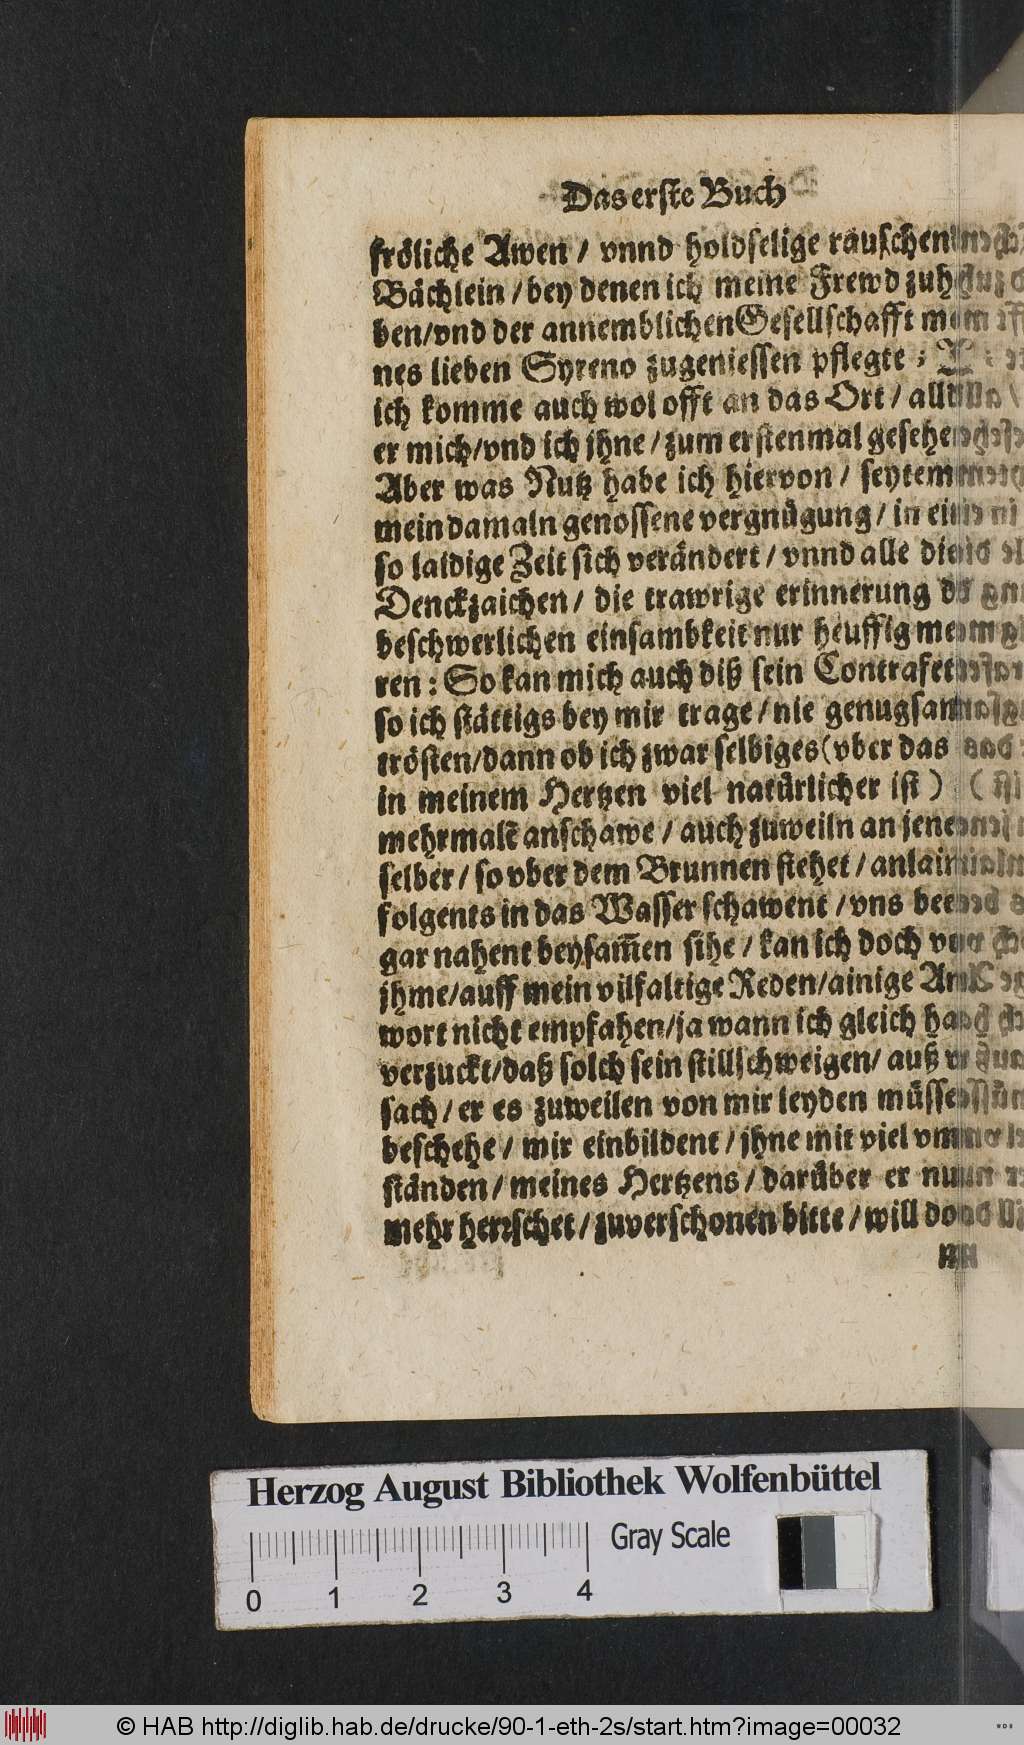 Das erste Buch
fröliche Awen / vnnd holdselige rauschen
Bächlein / bey denen ich meine Frewd zuh
ben/vnd der annemblichen Gesellschafft
nes lieben Syreno zugeniessen pflegte ;
ich komme auch wol offt an das Ort /
er mich/vnd ich jhne / zum erstenmal gesehen
Aber was Nutz habe ich hiervon / seytemm
mein damaln genossene vergnügung / in
so laidige Zeit sich verändert / vnnd alle
Denckzaichen / die trawrige erinnerung
beschwerlichen einsambkeit nur heuffig
ren : So kan mich auch diß sein Contrafet
so ich stättigs bey mir trage / nie genugsam
trösten/dann ob ich zwar selbiges (vber das
in meinem Hertzen viel natürlicher ist )
mehrmalẽ anschawe / auch zuweiln an jenem
selber / so vber dem Brunnen stehet / anlain
folgents in das Wasser schawent / vns beed
gar nahent beysam̃en sihe / kan ich doch von
jhme/auff mein vilfaltige Reden/ainige Ant
wort nicht empfahen/ja wann ich gleich
verzuckt/daß solch sein stillschweigen/ auß
sach / er es zuweilen von mir leyden müsse
beschehe / mir einbildent / jhne mit viel
ständen / meines Hertzens / darüber er nun
mehr herrschet / zuverschonen bitte / will doch
Herzog August Bibliothek Wolfenbüttel
Gray Scale
0 1 2 3 4
© HAB http://diglib.hab.de/drucke/90-1-eth-2s/start.htm?image=00032